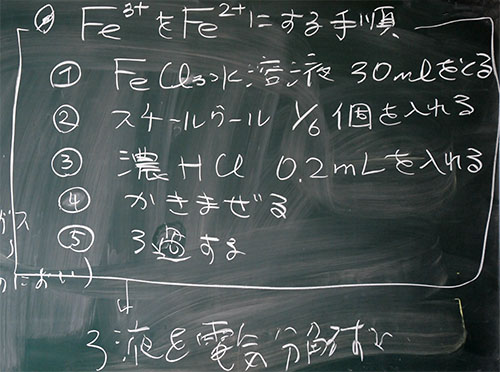 Fe³⁺をFe²⁺にする手順
① FeCl₃水溶液 30mlをとる
② スチールウール 1/6 個を入れる
③ 濃HCl 0.2mLを入れる
④ かきまぜる
⑤ ろ過する
ガス
のにおい)
↓
ろ液を電気分解する